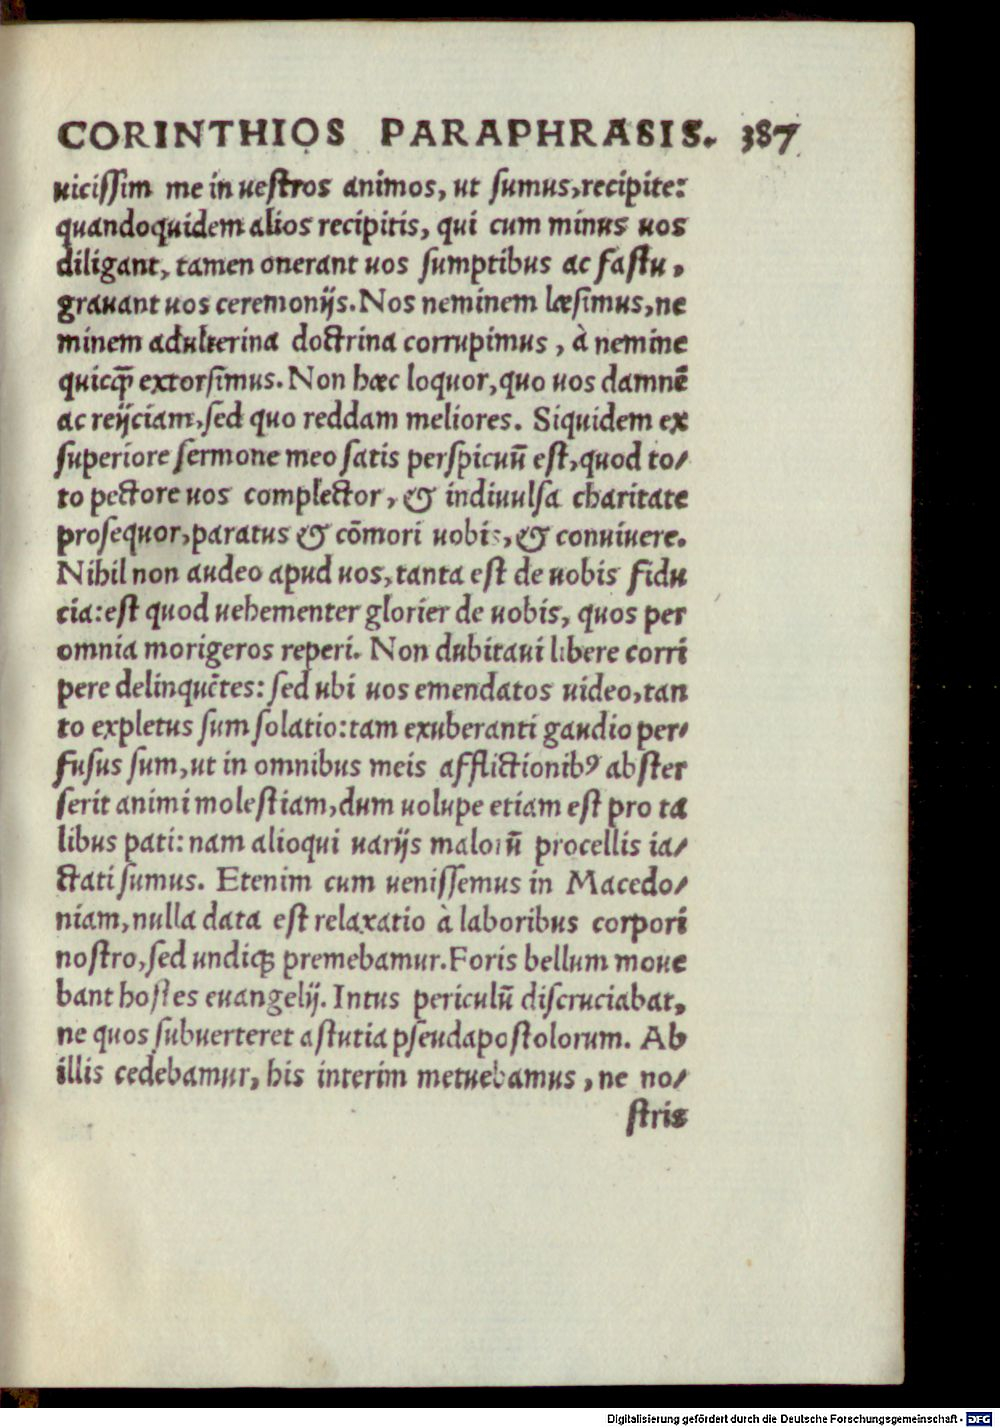 CORINTHIOS PARAPHRASIS. 387
uicissim me in uestros animos, ut sumus, recipite:
quandoquidem alios recipitis, qui cum minus uos
diligant, tamen onerant uos sumptibus ac fastu,
grauant uos ceremonijs. Nos neminem læsimus, ne
minem adulterina doctrina corrupimus, à nemine
quicq̃ extorsimus. Non hæc loquor, quo uos damnē
ac reijciam, sed quo reddam meliores. Siquidem ex
superiore sermone meo satis perspicuū est, quod to/
to pectore uos complector, & indiuulsa charitate
prosequor, paratus & cōmori uobis, & conuiuere.
Nihil non audeo apud uos, tanta est de uobis fidu
cia: est quod uehementer glorier de uobis, quos per
omnia morigeros reperi. Non dubitaui libere corri
pere delinquētes: sed ubi uos emendatos uideo, tan
to expletus sum solatio: tam exuberanti gaudio per/
fusus sum, ut in omnibus meis afflictionibꝰ abster
serit animi molestiam, dum uolupe etiam est pro ta
libus pati: nam alioqui uarijs malorū procellis ia/
ctati sumus. Etenim cum uenissemus in Macedo/
niam, nulla data est relaxatio à laboribus corpori
nostro, sed undiqꝫ premebamur. Foris bellum moue
bant hostes euangelij. Intus periculū discruciabat,
ne quos subuerteret astutia pseudapostolorum. Ab
illis cedebamur, his interim metuebamus, ne no/
stris
Digitalisierung gefördert durch die Deutsche Forschungsgemeinschaft - DFG